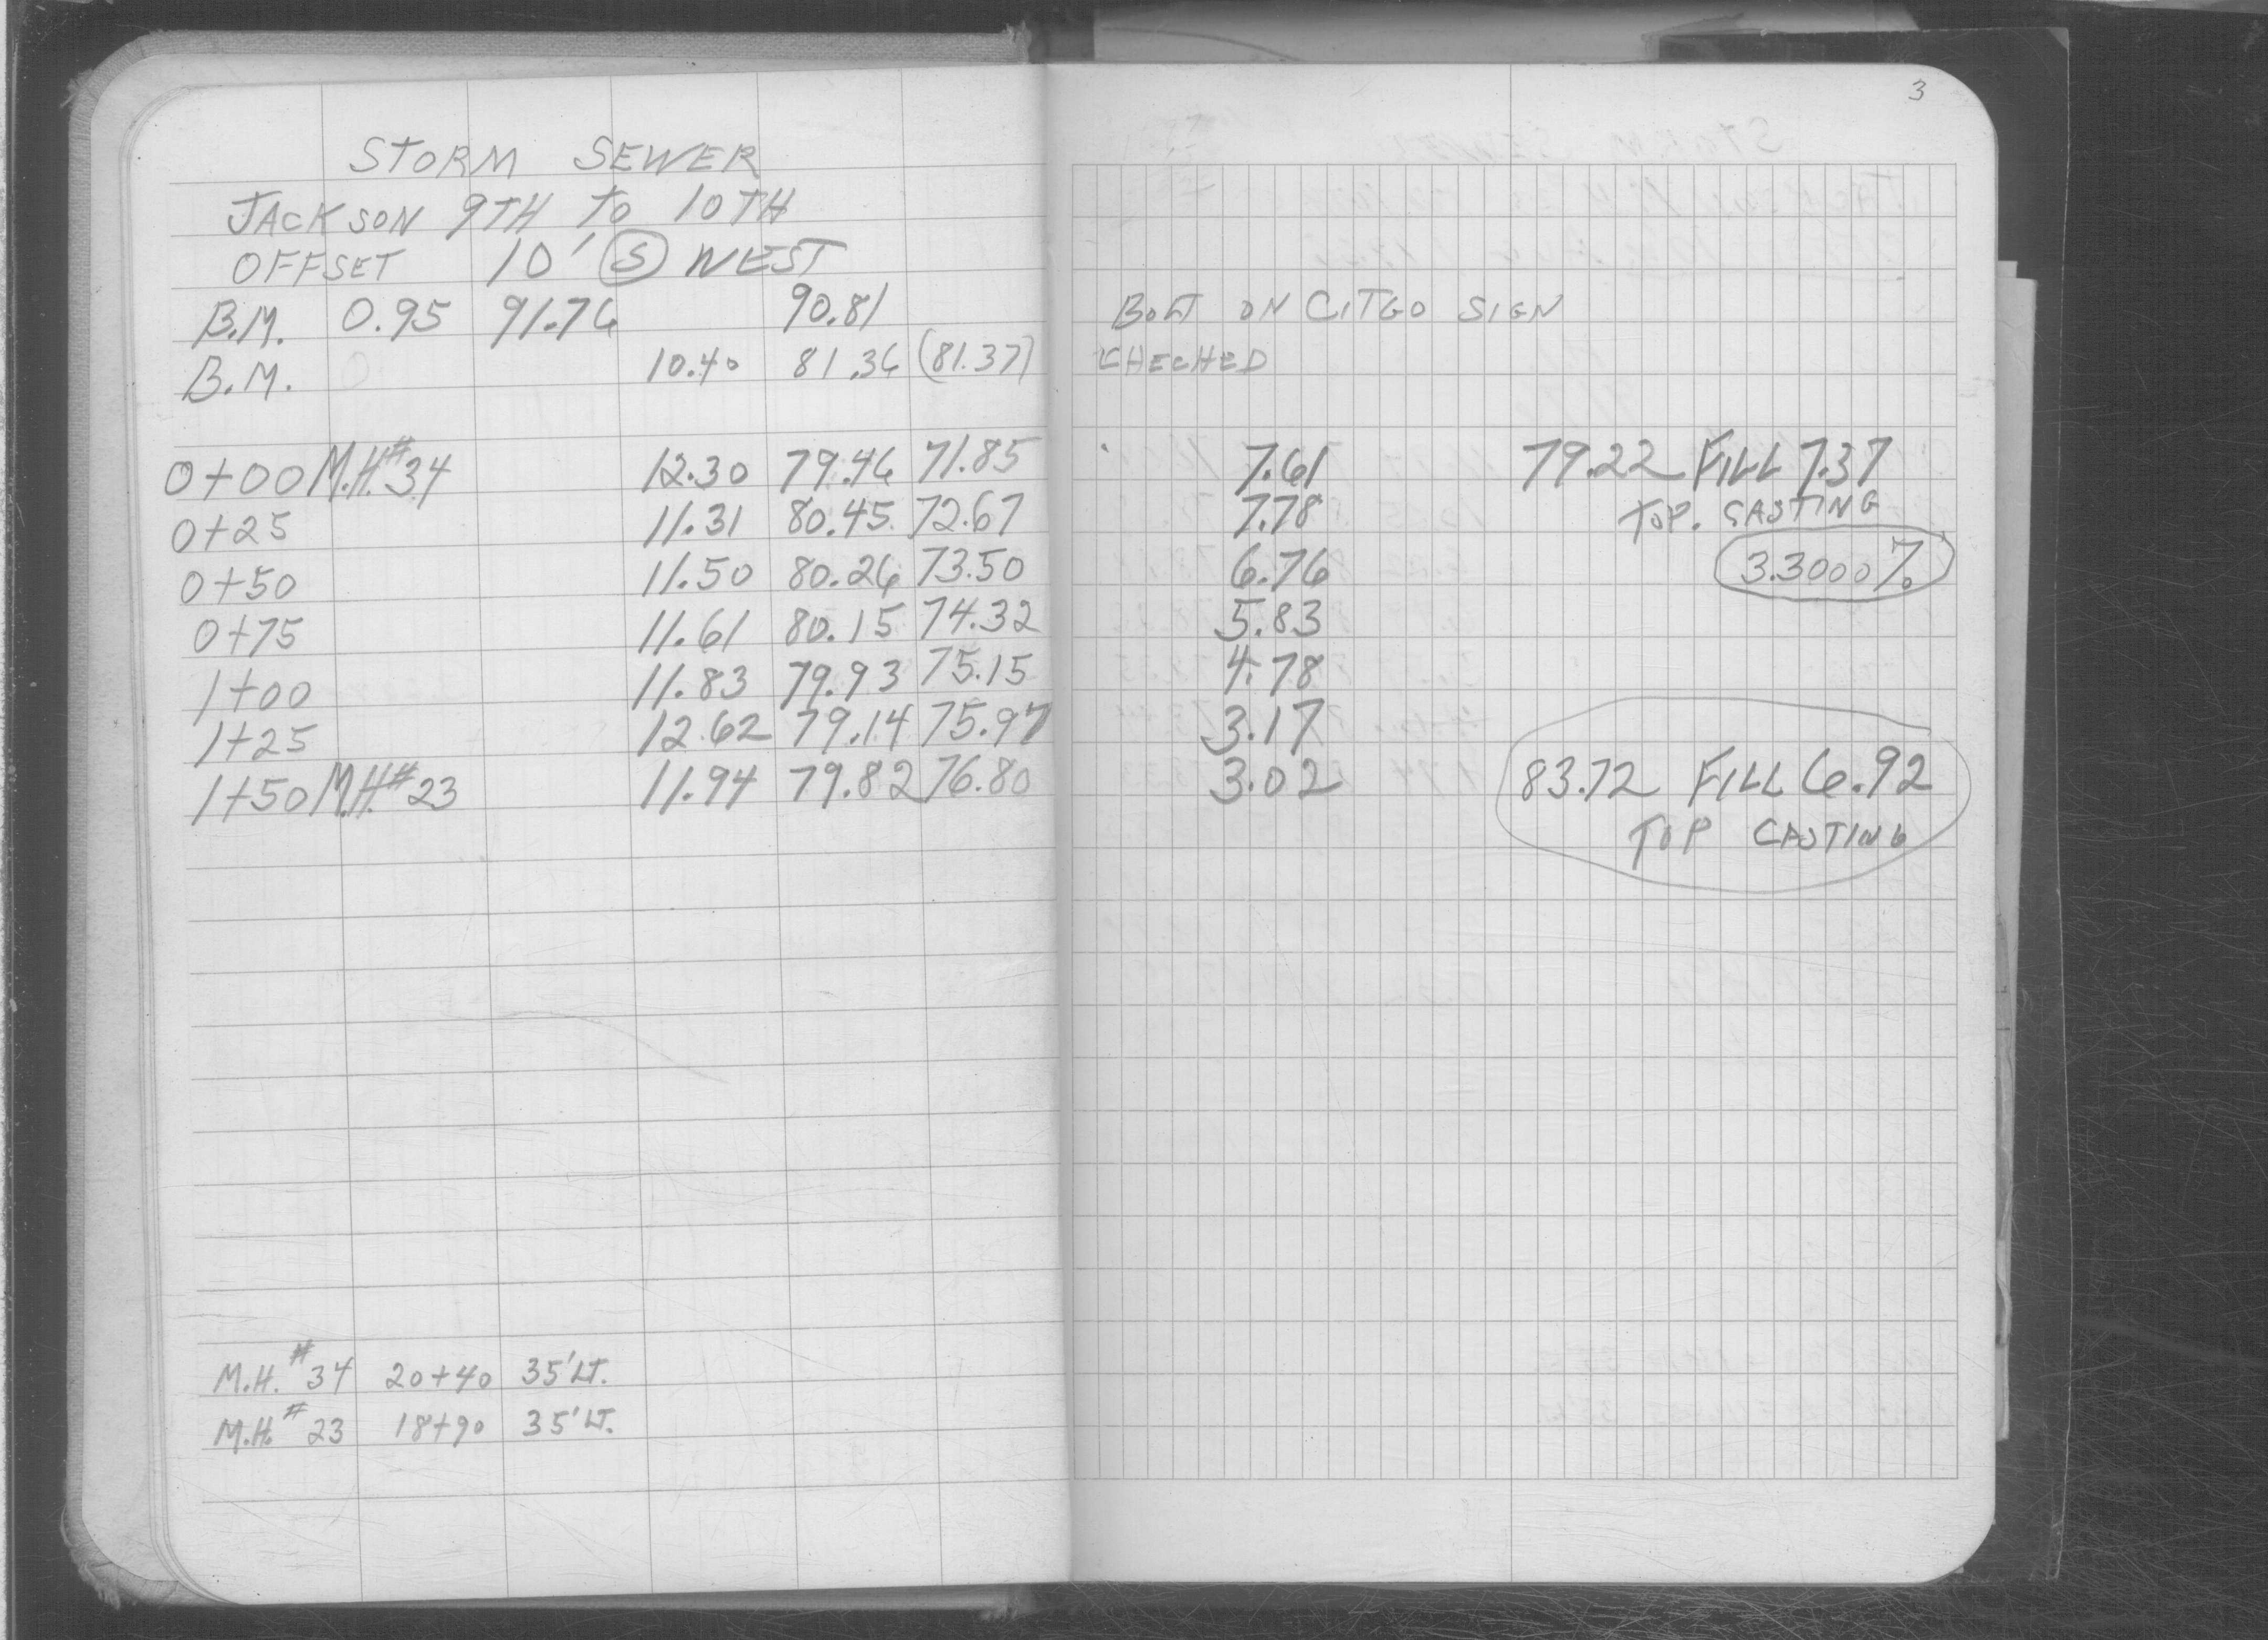 3
STORM SEWER
JACKSON 9TH TO 10TH
OFFSET 10' S WEST
B.M. 0.95 91.76 90.81 BOLT ON CITGO SIGN
B.M. 10.40 81.36 (81.37) CHECKED
0+00 M.H.#34 12.30 79.46 71.85 7.61 79.22 FILL 7.37
TOP. CASTING
0+25 11.31 80.45 72.67 7.78
0+50 11.50 80.26 73.50 6.76 3.3000%
0+75 11.61 80.15 74.32 5.83
1+00 11.83 79.93 75.15 4.78
1+25 12.62 79.14 75.97 3.17
1+50 M.H.#23 11.94 79.82 76.80 3.02 83.72 FILL 6.92
TOP CASTING
M.H. #34 20+40 35' LT.
M.H. #23 18+90 35' LT.